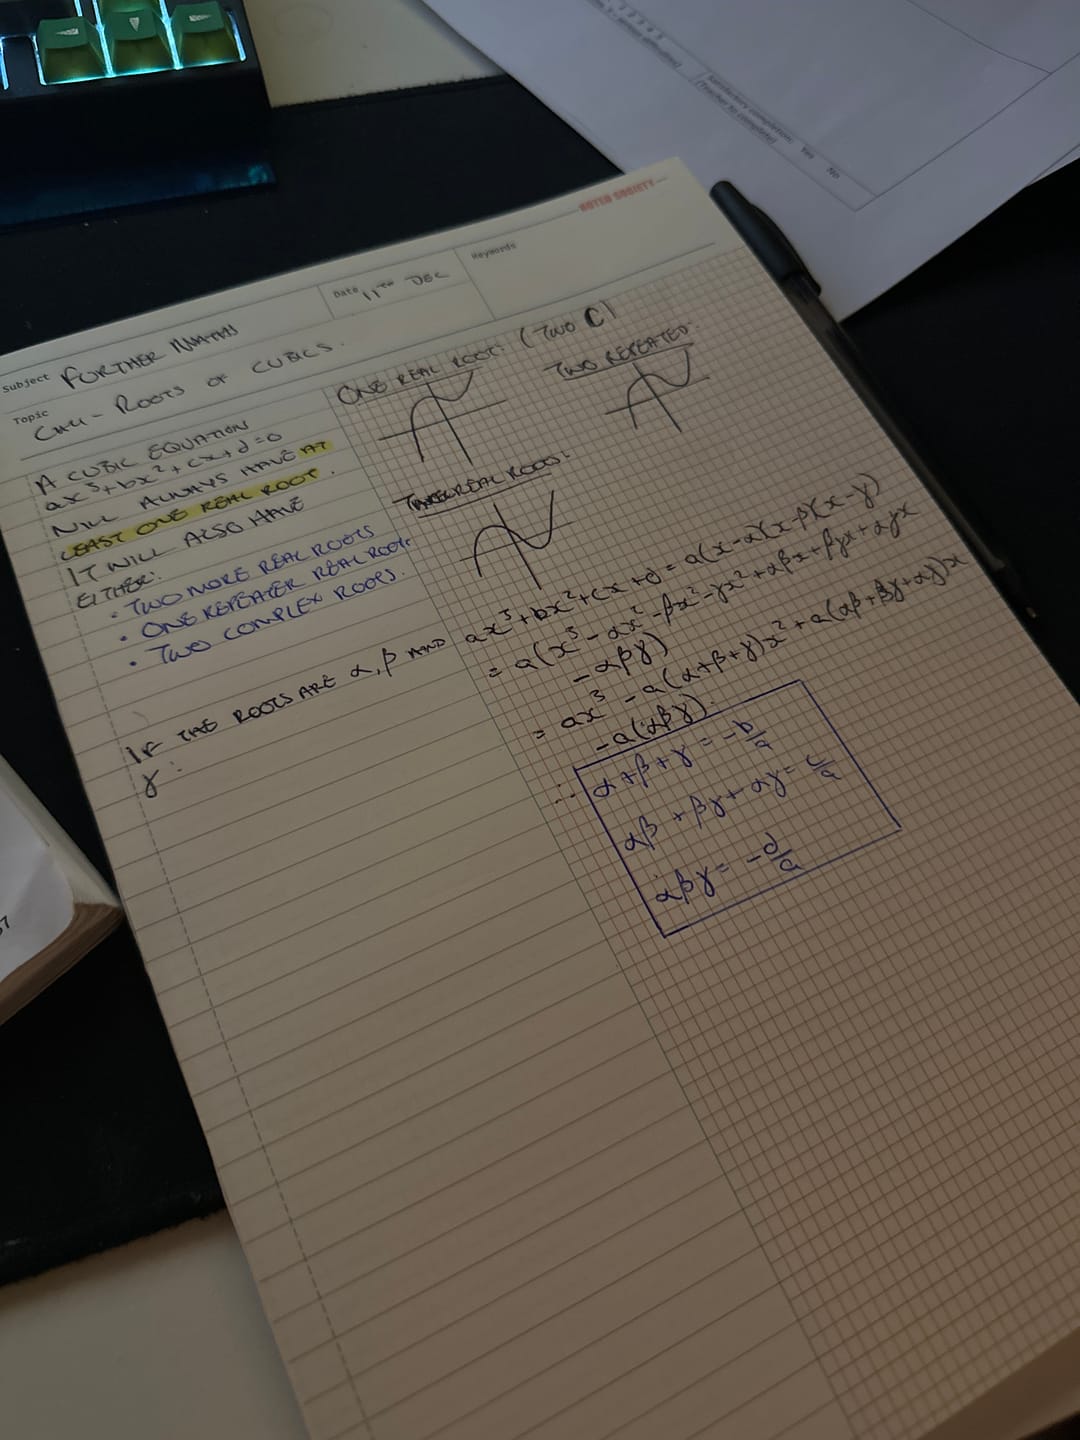 NOTED SOCIETY
Subject FURTHER MATHS
Date 11TH DEC
Keywords
Topic
CH4 - ROOTS OF CUBICS.
A CUBIC EQUATION
ax³+bx²+cx+d=0
WILL ALWAYS HAVE AT
LEAST ONE REAL ROOT.
IT WILL ALSO HAVE
EITHER:
• TWO MORE REAL ROOTS
• ONE REPEATED REAL ROOT
• TWO COMPLEX ROOTS.
ONE REAL ROOT: (TWO C)
TWO REPEATED:
THREE REAL ROOTS:
IF THE ROOTS ARE α, β AND
γ:
ax³+bx²+cx+d = a(x-α)(x-β)(x-γ)
= a(x³-αx²-βx²-γx²+αβx+βγx+αγx
-αβγ)
= ax³ -a(α+β+γ)x²+a(αβ+βγ+αγ)x
-a(αβγ).
∴ α+β+γ = -b/a
αβ+βγ+αγ = c/a
αβγ = -d/a
Satisfactory completion: Yes No
(Teacher to complete)
57